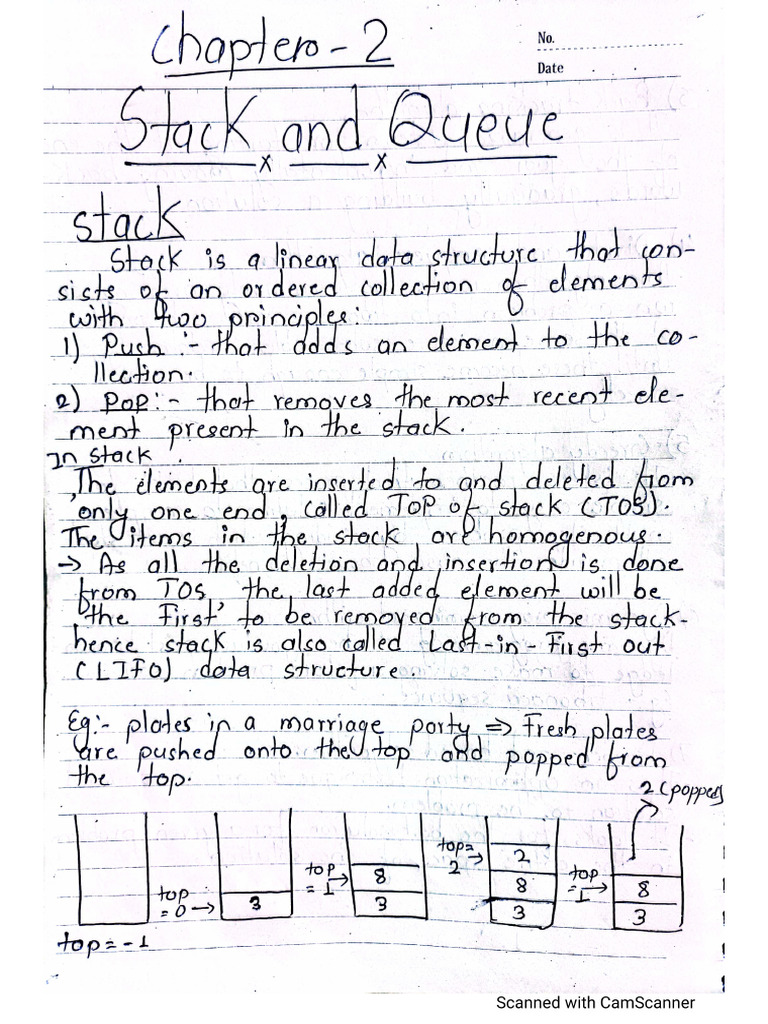 Chapter - 2
No.
Date
Stack and Queue
x x
stack
Stack is a linear data structure that con-
sists of an ordered collection of elements
with two principles:
1) Push :- that adds an element to the co-
llection.
2) Pop:- that removes the most recent ele-
ment present in the stack.
In stack
The elements are inserted to and deleted from
only one end, called TOP of stack (TOS).
The items in the stack are homogenous.
→ As all the deletion and insertion is done
from TOS, the last added element will be
'the first' to be removed from the stack-
hence stack is also called Last-in-First out
(LIFO) data structure.
Eg:- plates in a marriage party ⇒ Fresh plates
are pushed onto the top and popped from
the top.
2 (popped)
top = -1
top = 0 → 3
top = 1 → 8 3
top = 2 → 2 8 3
top = 1 → 8 3
Scanned with CamScanner